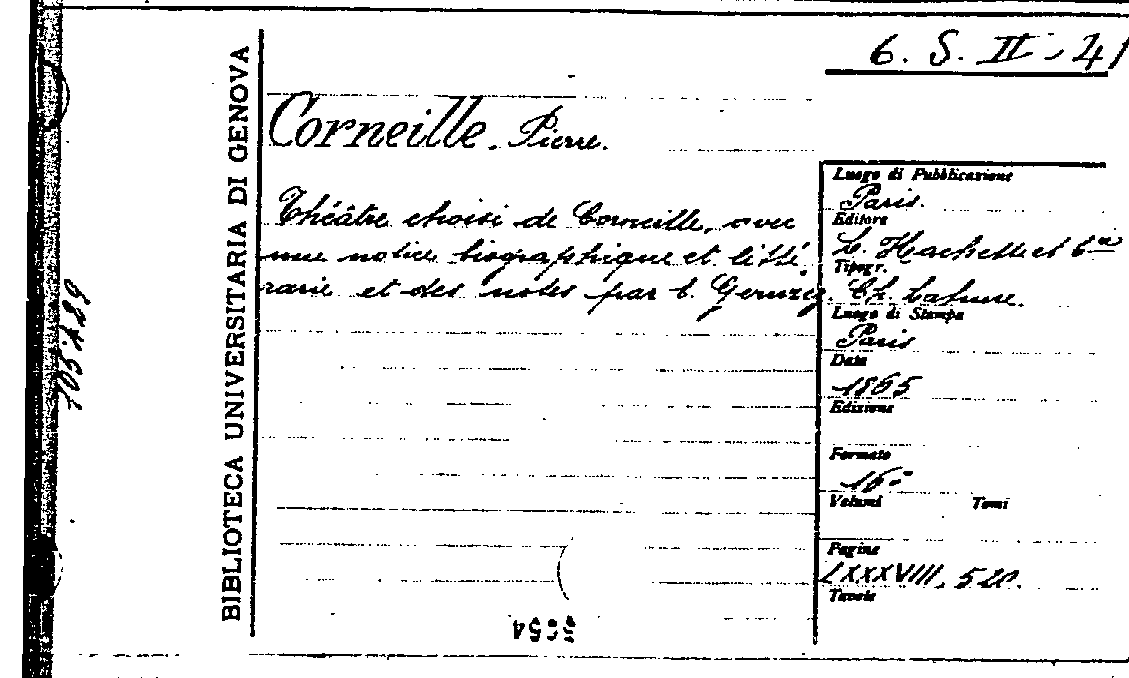 6. S. II. 41
BIBLIOTECA UNIVERSITARIA DI GENOVA
105489
Corneille. Pierre.
Théâtre choisi de Corneille, avec
une notice biographique et litté
raire et des notes par E. Geruzez.
Luogo di Pubblicazione
Paris.
Editore
L. Hachette et C.ie
Tipogr.
Ch. Lahure.
Luogo di Stampa
Paris
Data
1865
Edizione
Formato
16°
Volumi Tomi
Pagine
LXXXVIII, 520.
Tavole